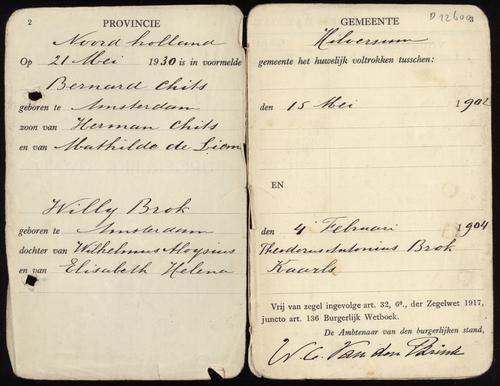 2 PROVINCIE
Noord holland
Op 21 Mei 1930 is in voormelde
Bernard Chits
geboren te Amsterdam
zoon van Herman Chits
en van Mathilda de Liem
Willy Brok
geboren te Amsterdam
dochter van Wilhelmus Aloysius
en van Elisabeth Helena
GEMEENTE
Hilversum
gemeente het huwelijk voltrokken tusschen:
den 15 Mei 1902
EN
den 4 Februari 1904
Theodorus Antonius Brok
Kaarls
Vrij van zegel ingevolge art. 32, 6º., der Zegelwet 1917,
juncto art. 136 Burgerlijk Wetboek.
De Ambtenaar van den burgerlijken stand,
W. C. Van den Brink